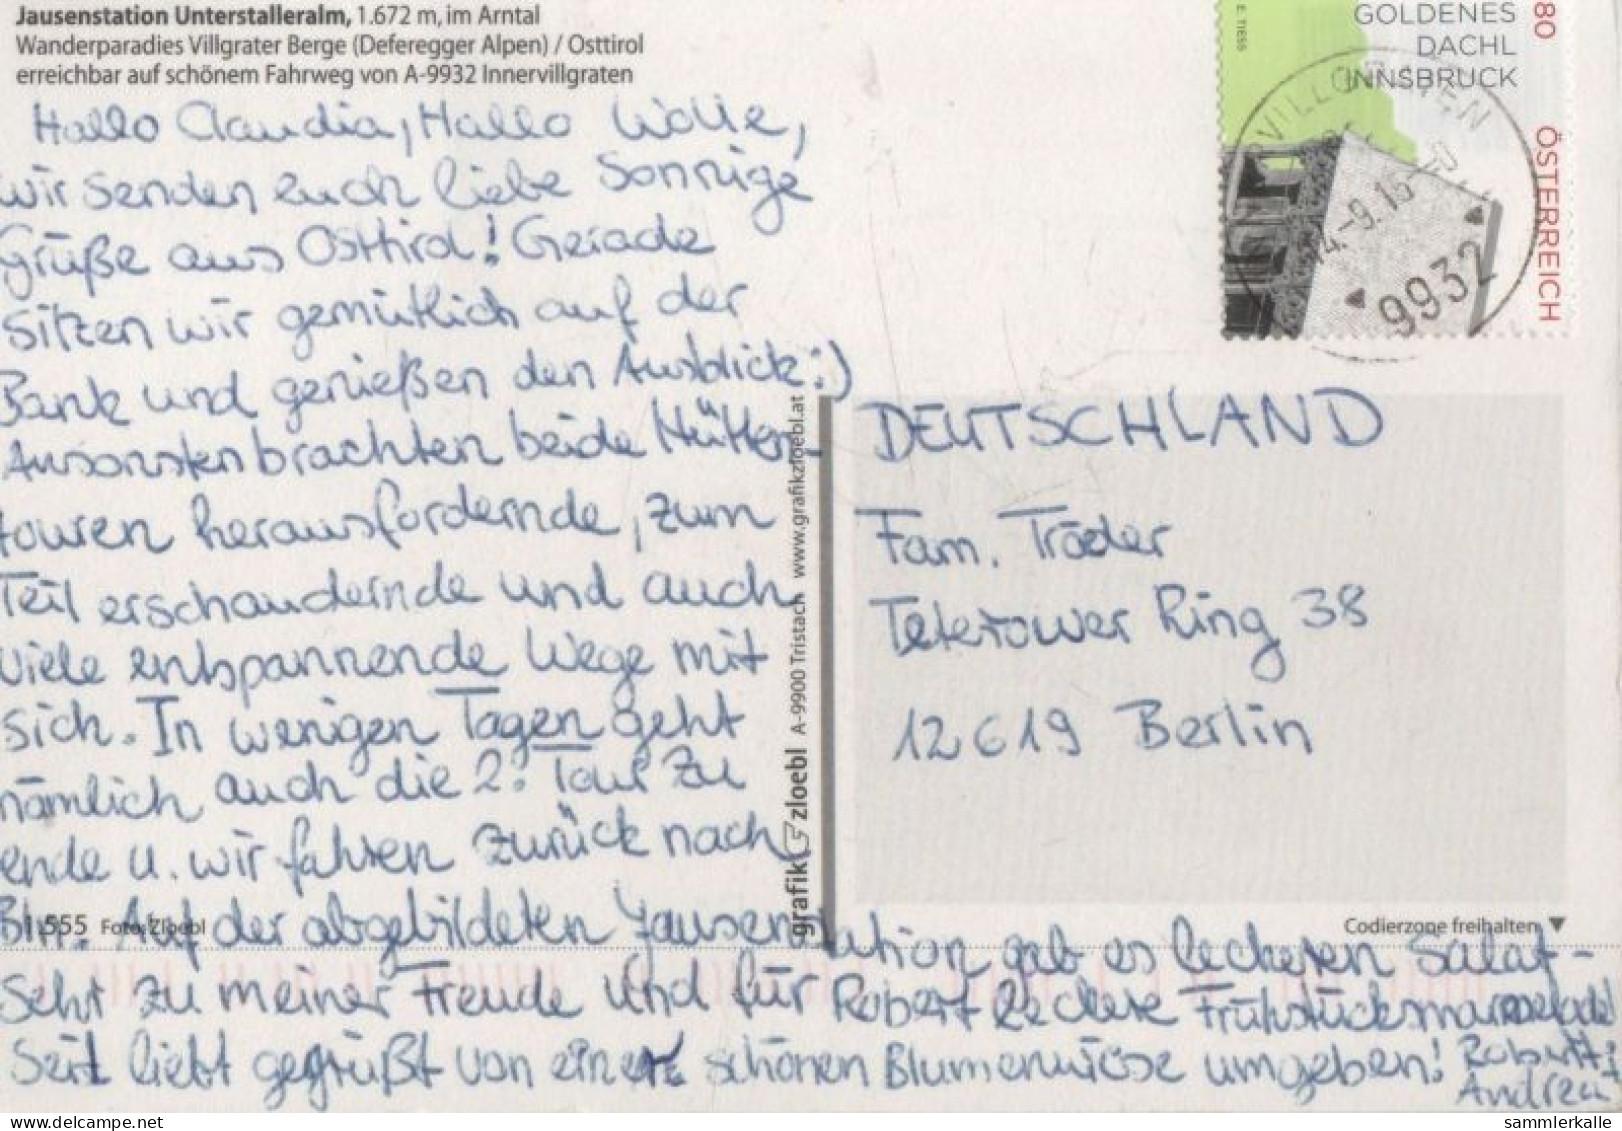 Jausenstation Unterstalleralm, 1.672 m, im Arntal
Wanderparadies Villgrater Berge (Deferegger Alpen) / Osttirol
erreichbar auf schönem Fahrweg von A-9932 Innervillgraten
Hallo Claudia, Hallo Wolle,
wir senden euch liebe Sonnige
Grüße aus Osttirol! Gerade
sitzen wir gemütlich auf der
Bank und genießen den Ausblick :)
Ansonsten brachten beide Hütten-
touren herausfordernde, zum
Teil erschaudernde und auch
viele entspannende Wege mit
sich. In wenigen Tagen geht
nämlich auch die 2. Tour zu
ende u. wir fahren zurück nach
Bln. Auf der abgebildeten Jausenstation gab es leckeren Salat-
Sehr zu meiner Freude und für Robert leckere Frühstücksmarmelade!
Seit liebt gegrüßt von einer schönen Blumenwiese umgeben! Robert &
Andrea
555 Foto: Zloebl
grafik zloebl A-9900 Tristach www.grafikzloebl.at
E. TIESS
80
GOLDENES
DACHL
INNSBRUCK
ÖSTERREICH
VILLGRATEN
14.-9.15
9932
DEUTSCHLAND
Fam. Träder
Teterower Ring 38
12619 Berlin
Codierzone freihalten ▼
sammlerkalle